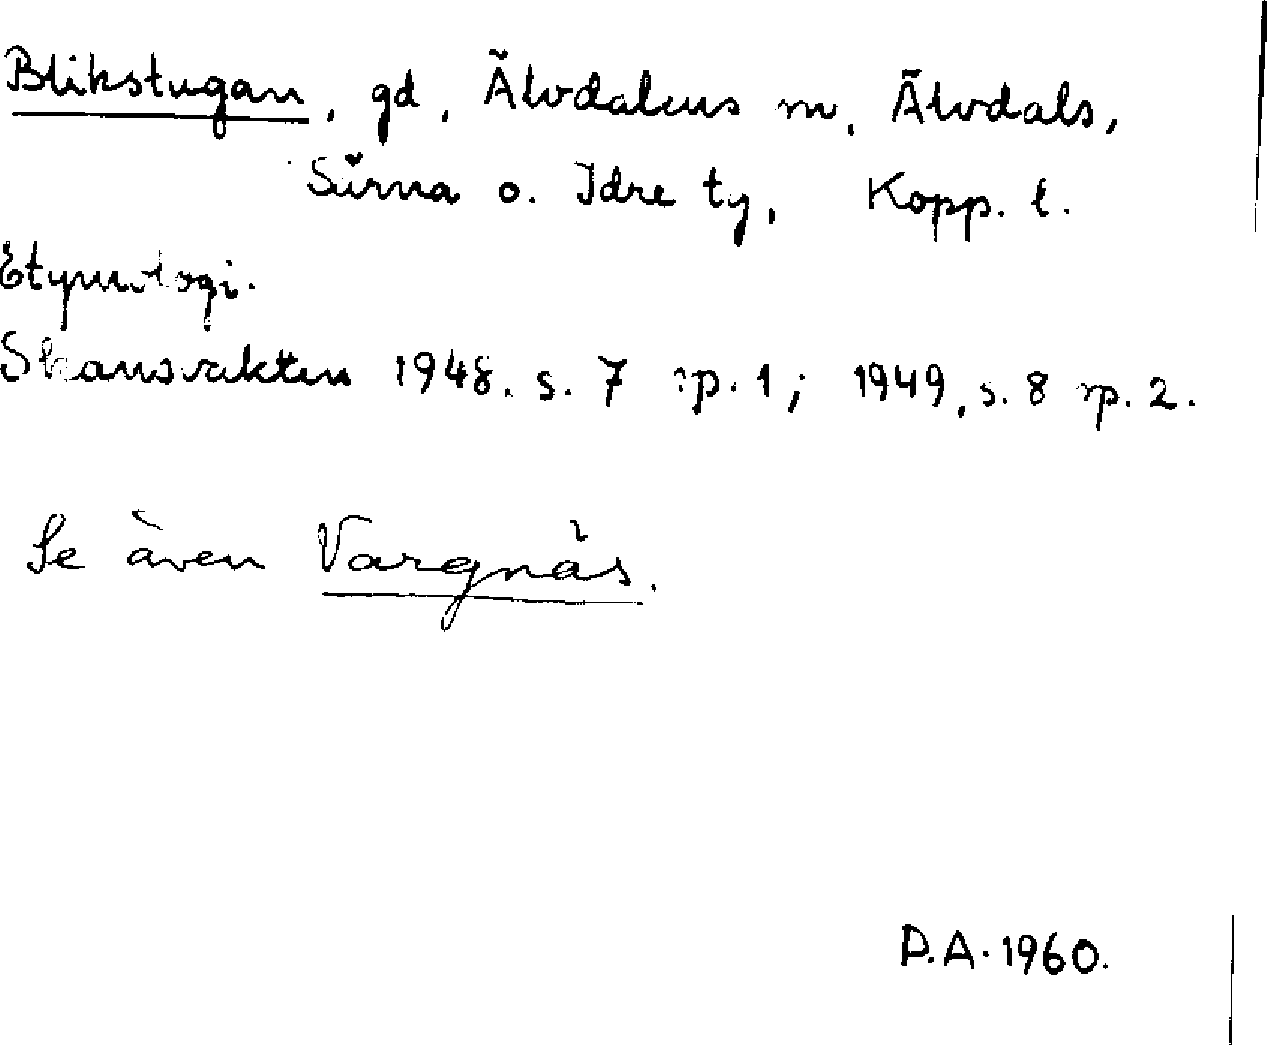 Blikstugan, gd, Älvdalens m, Älvdals,
Särna o. Idre ty, Kopp. l.
Etymologi.
Skansvakten 1948. s. 7 sp. 1; 1949, s. 8 sp. 2.
Se även Vargnäs.
D.A. 1960.